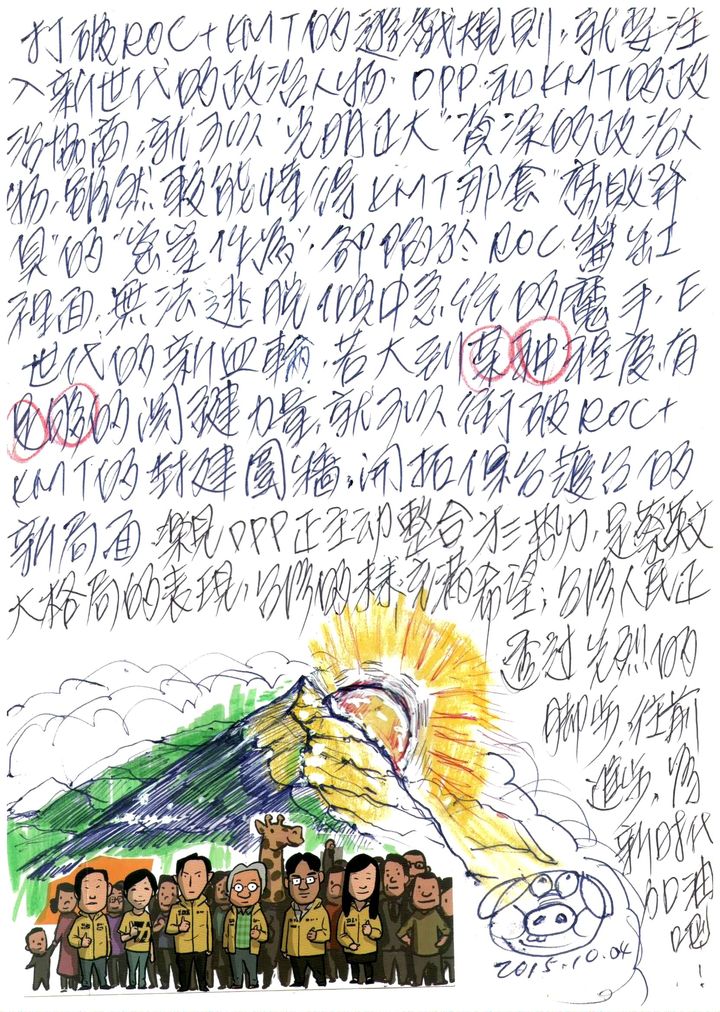 打破ROC+KMT的遊戲規則,就要注
入新世代的政治人物. DPP和KMT的政
治協商,就可以"光明正大"資深的政治人
物,雖然較能懂得KMT那套"腐敗
的"",卻陷於ROC醬缸
裡面,無法逃脫的魔手,E
世代的新血輪,若大到某种程度,有
足够的關鍵力量,就可以衝破ROC+
KMT的封建圍牆,開拓保台護台的
新局面.深見DPP正主动整合才三势力,是蔡英文
大格局的表現,台灣的未來充滿希望;台灣人民正
透过先烈的
脚步,往前
進步,為
新时代
加油
吧!
2015.10.04